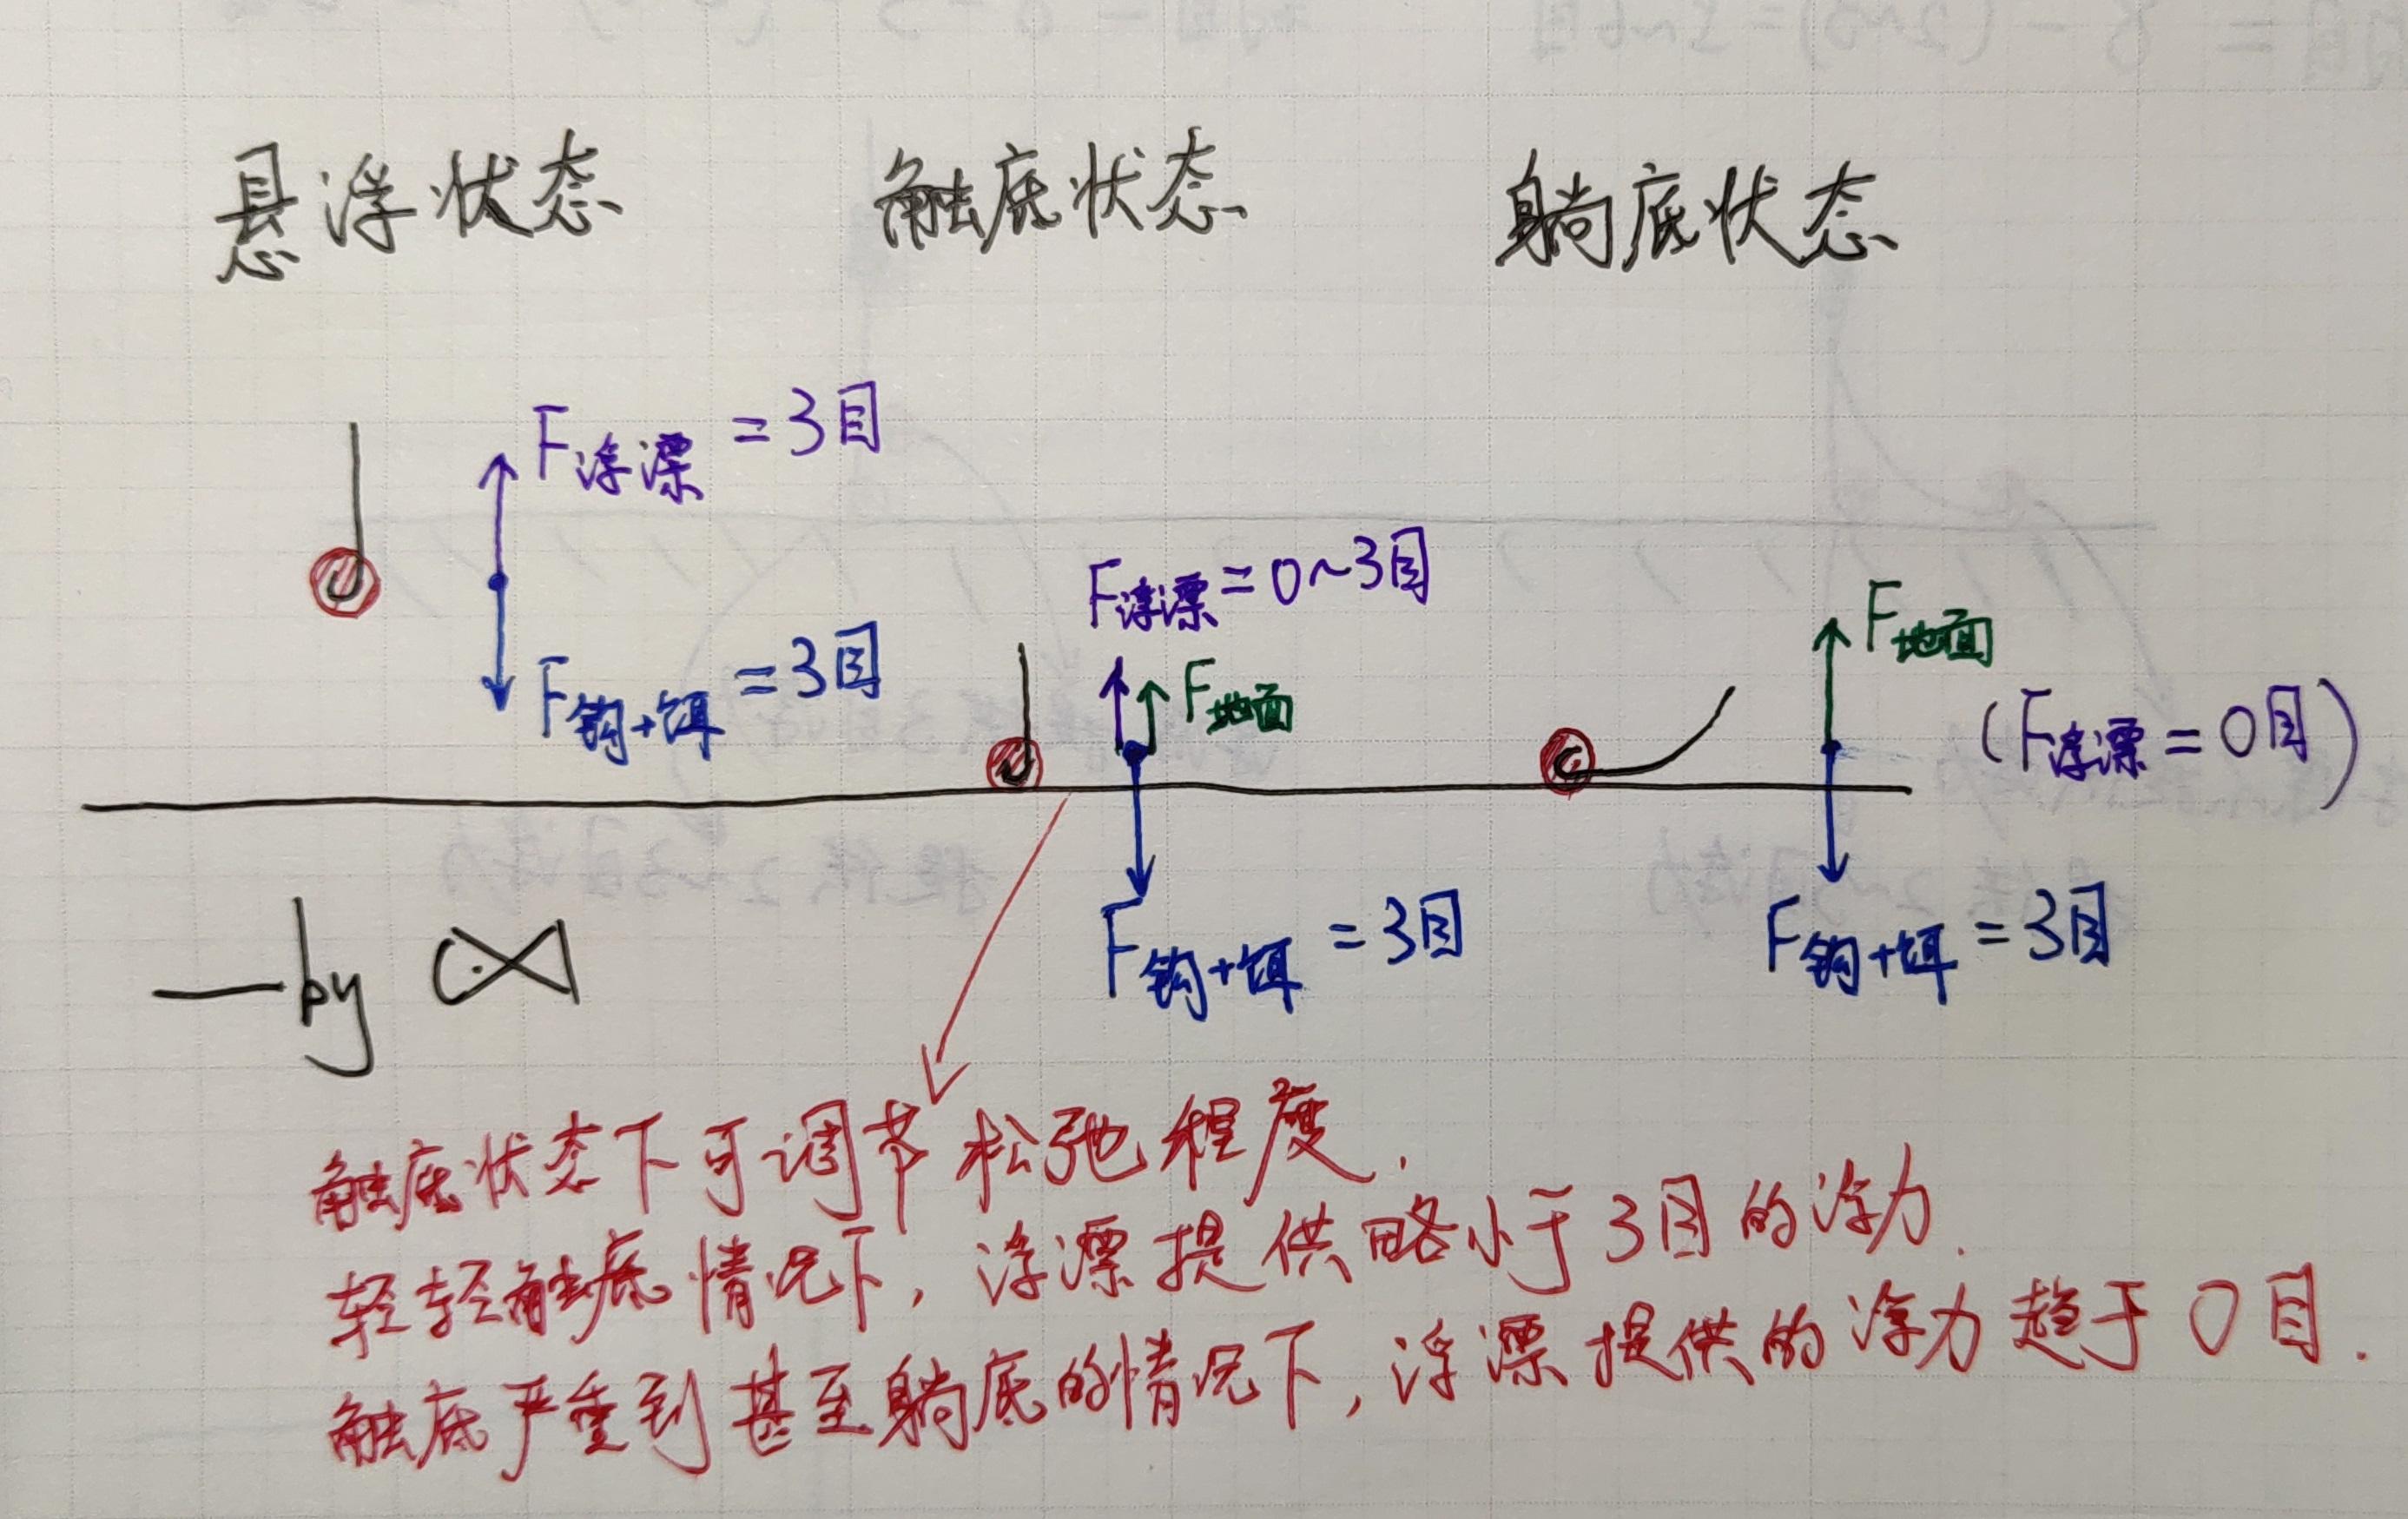 悬浮状态
触底状态
躺底状态
F浮漂=3目
F钩+饵=3目
F浮漂=0~3目
F地面
F钩+饵=3目
F地面
(F浮漂=0目)
F钩+饵=3目
—by
触底状态下可调节松弛程度.
轻轻触底情况下,浮漂提供略小于3目的浮力.
触底严重到甚至躺底的情况下,浮漂提供的浮力趋于0目.